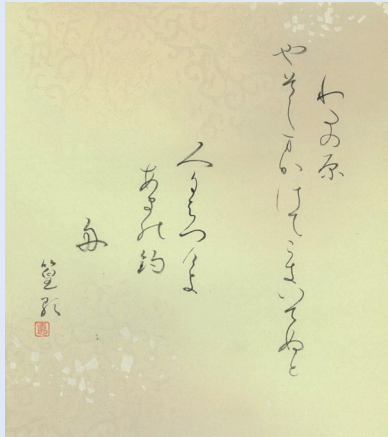 わたの原
やそしまかけてこきいてぬと
人にはつけよ
あまの釣
舟
篁